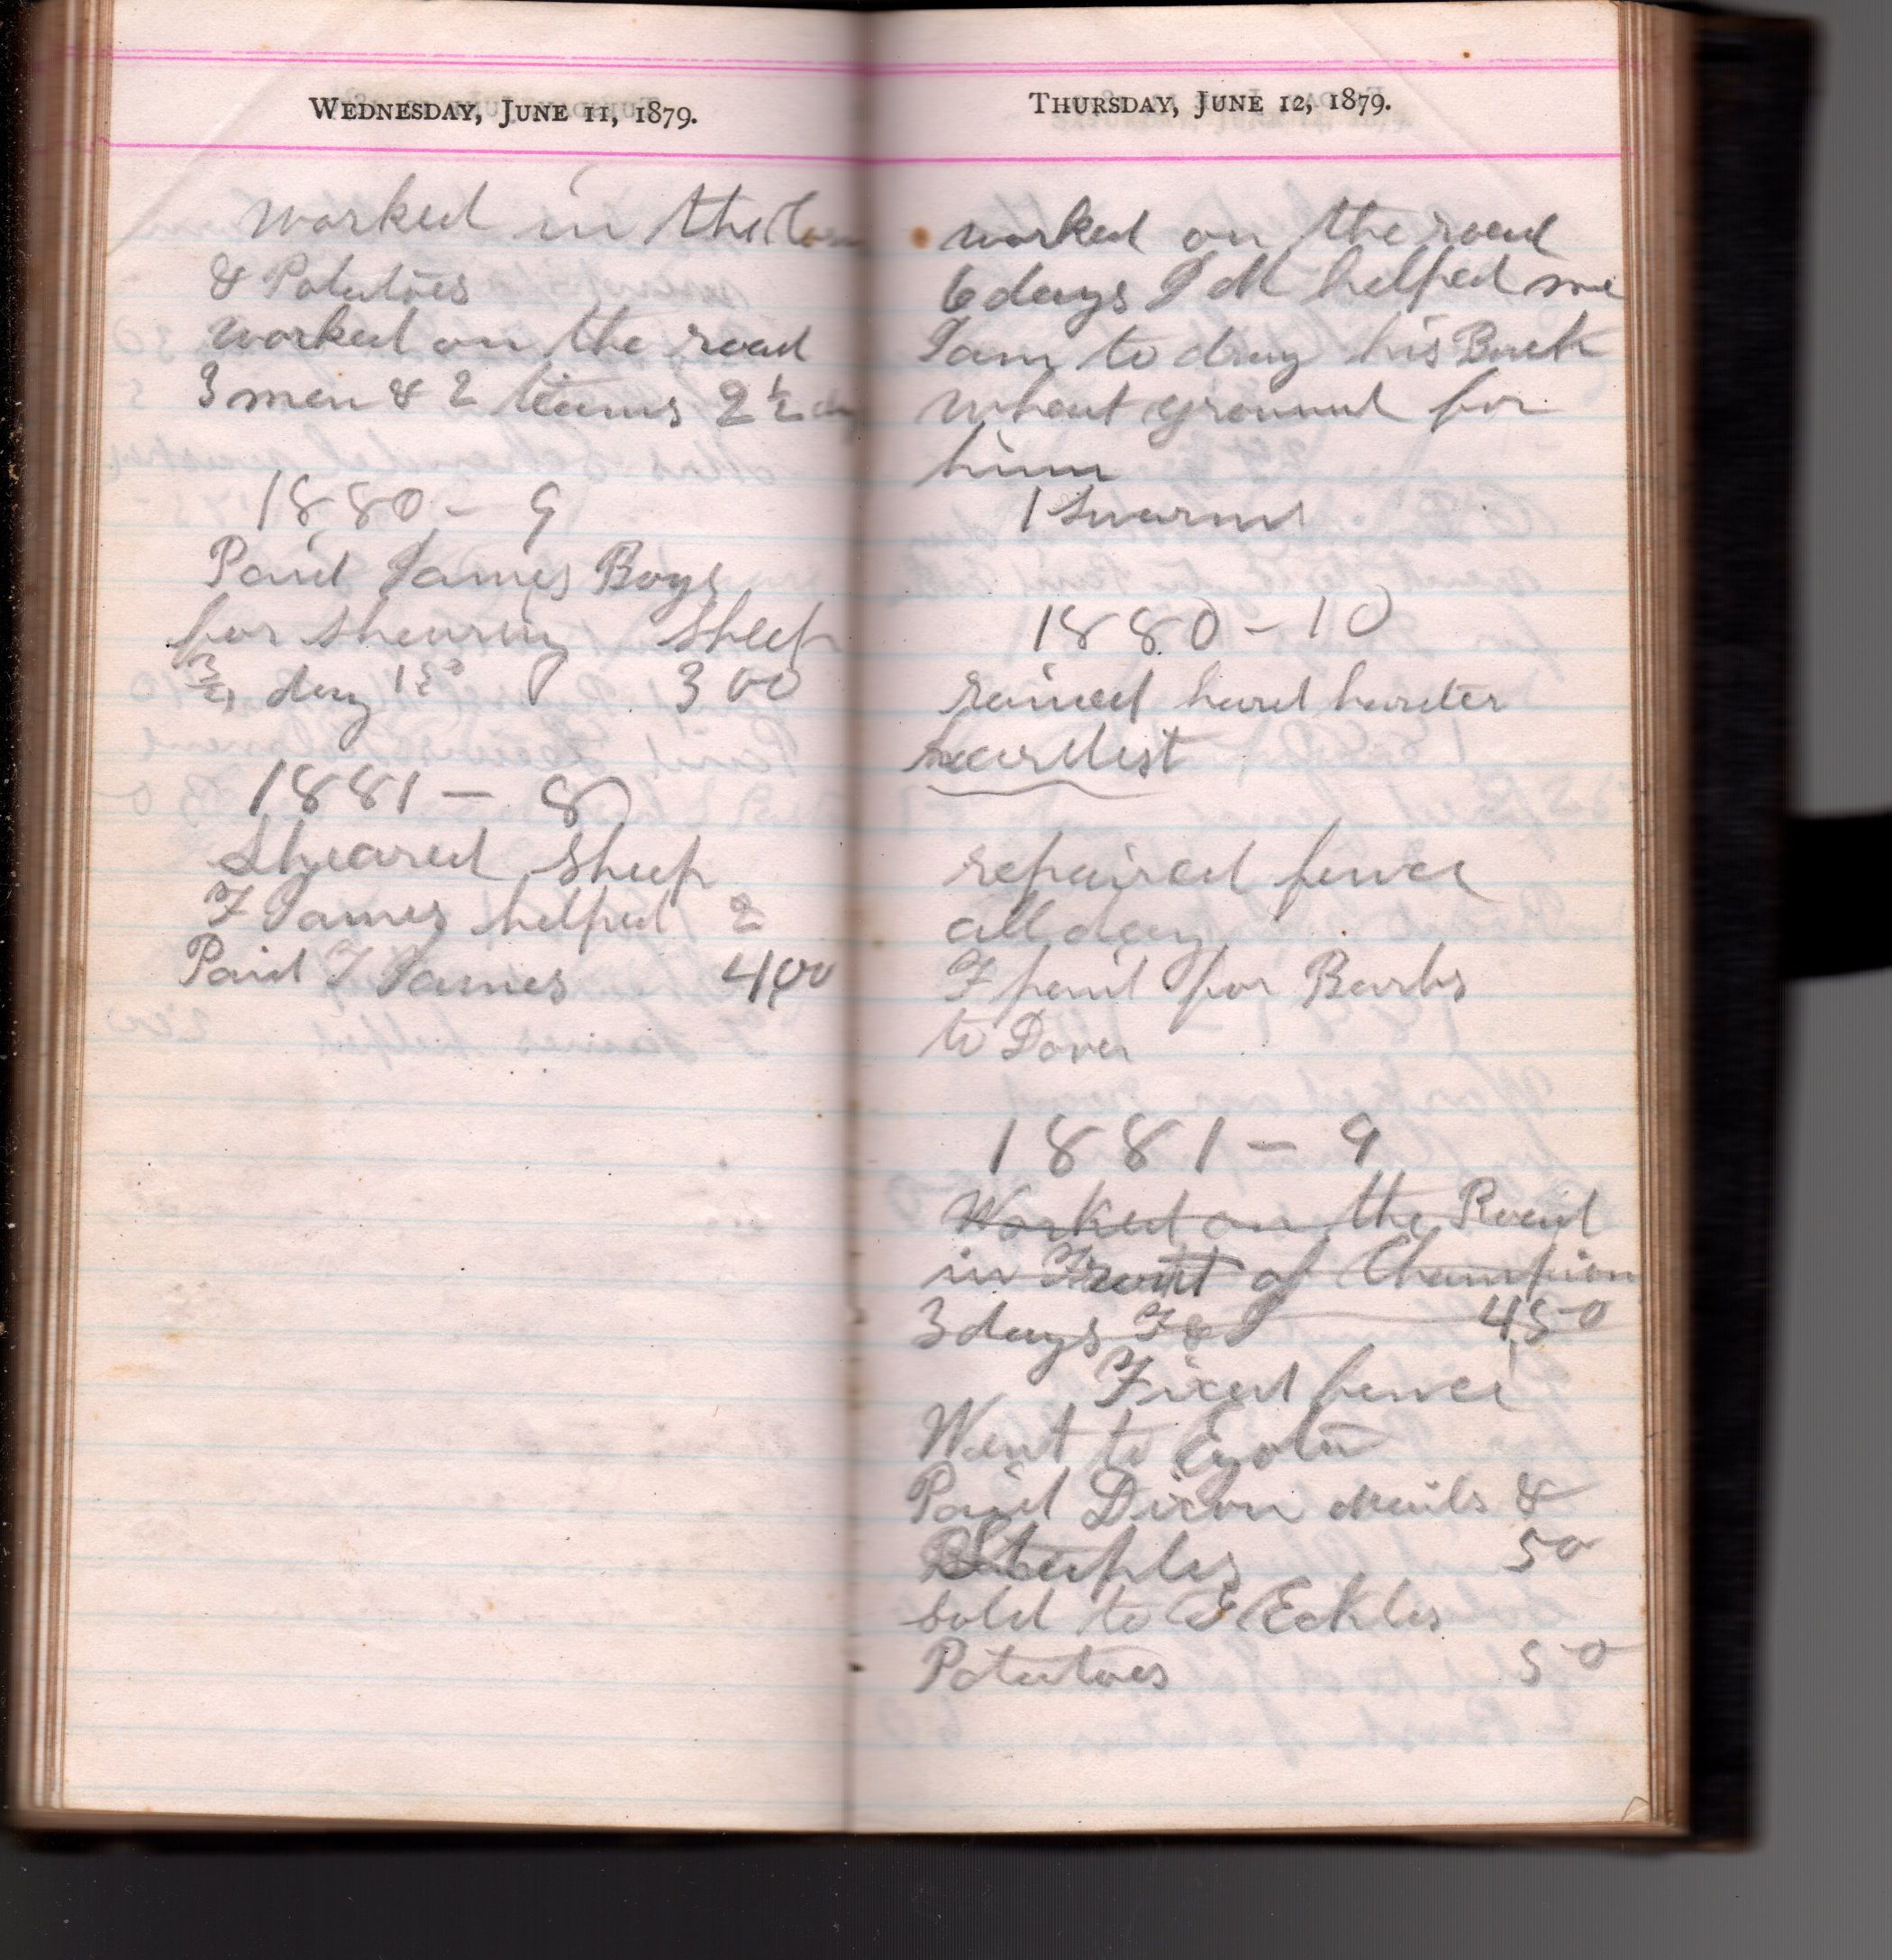 WEDNESDAY, JUNE 11, 1879.
worked in the Corn
& Potatoes
worked on the road
3 men & 2 teams 2 ½ day
1880 - 9
Paid James Boys
for shearing Sheep
¾ day 1 50 3 00
1881 - 8
Sheared Sheep
F James helped 2
Paid F James 4 00
THURSDAY, JUNE 12, 1879.
worked on the road
6 days helped me
I am to drag his Buck
wheat ground for
him
1 Swarm
1880 - 10
rained hard harder
hardest
repaired fence
all day
F paid for Barbs
to Dover
1881 - 9
Worked on the Road
in Front of Champion
3 days F & I 4 50
Fixed fence
Went to Eyota
Paid Dixon nails &
Steeples 50
Sold to E Eckles
Potatoes 50